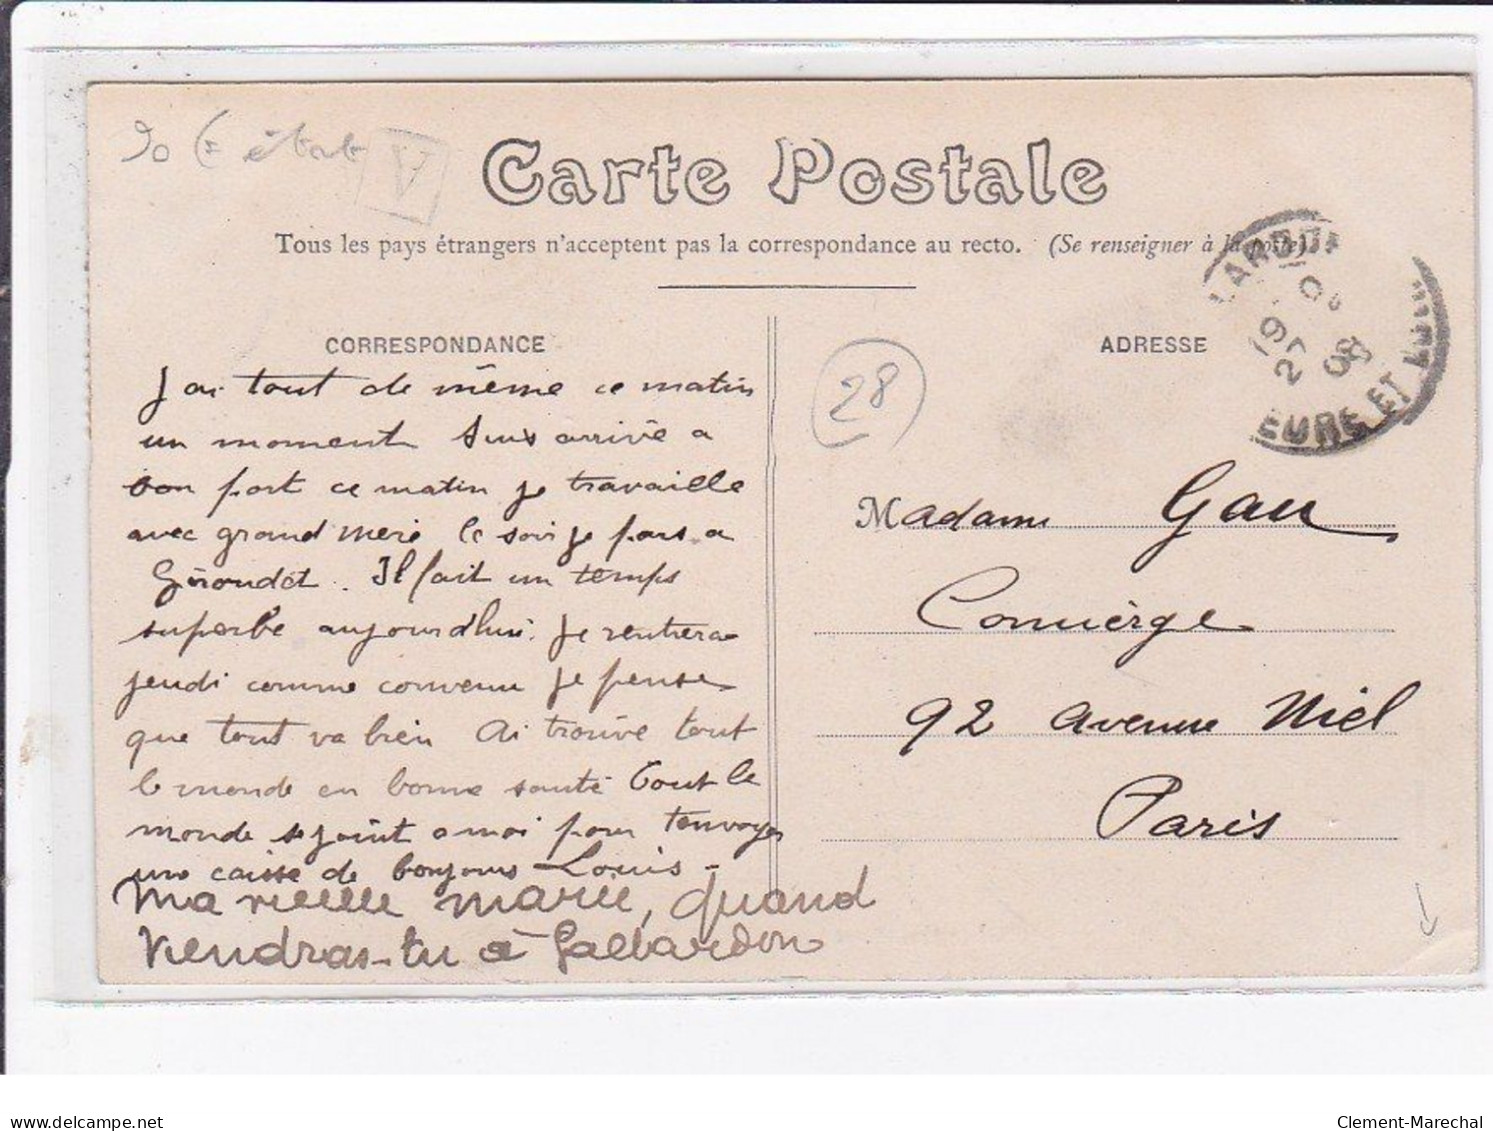 30 € état
V
Carte Postale
Tous les pays étrangers n'acceptent pas la correspondance au recto. (Se renseigner à la poste).
LARDON
19
27 08
EURE ET
CORRESPONDANCE
J ai tout de même ce matin
un moment Suis arrivé a
bon port ce matin je travaille
avec grand mere le soir je pars a
Giroudet. Il fait un temps
superbe aujourdhui. Je rentrerai
jeudi comme convenu Je pense
que tout va bien Ai trouvé tout
le monde en bonne santé Tout le
monde se joint a moi pour t'envoyer
une caisse de bonjours Louis -
Ma vieille marie, quand
viendras-tu à Gallardon
28
ADRESSE
Madame Gau
Concièrge
92 avenue Niel
Paris
delcampe.net
Clement-Marechal